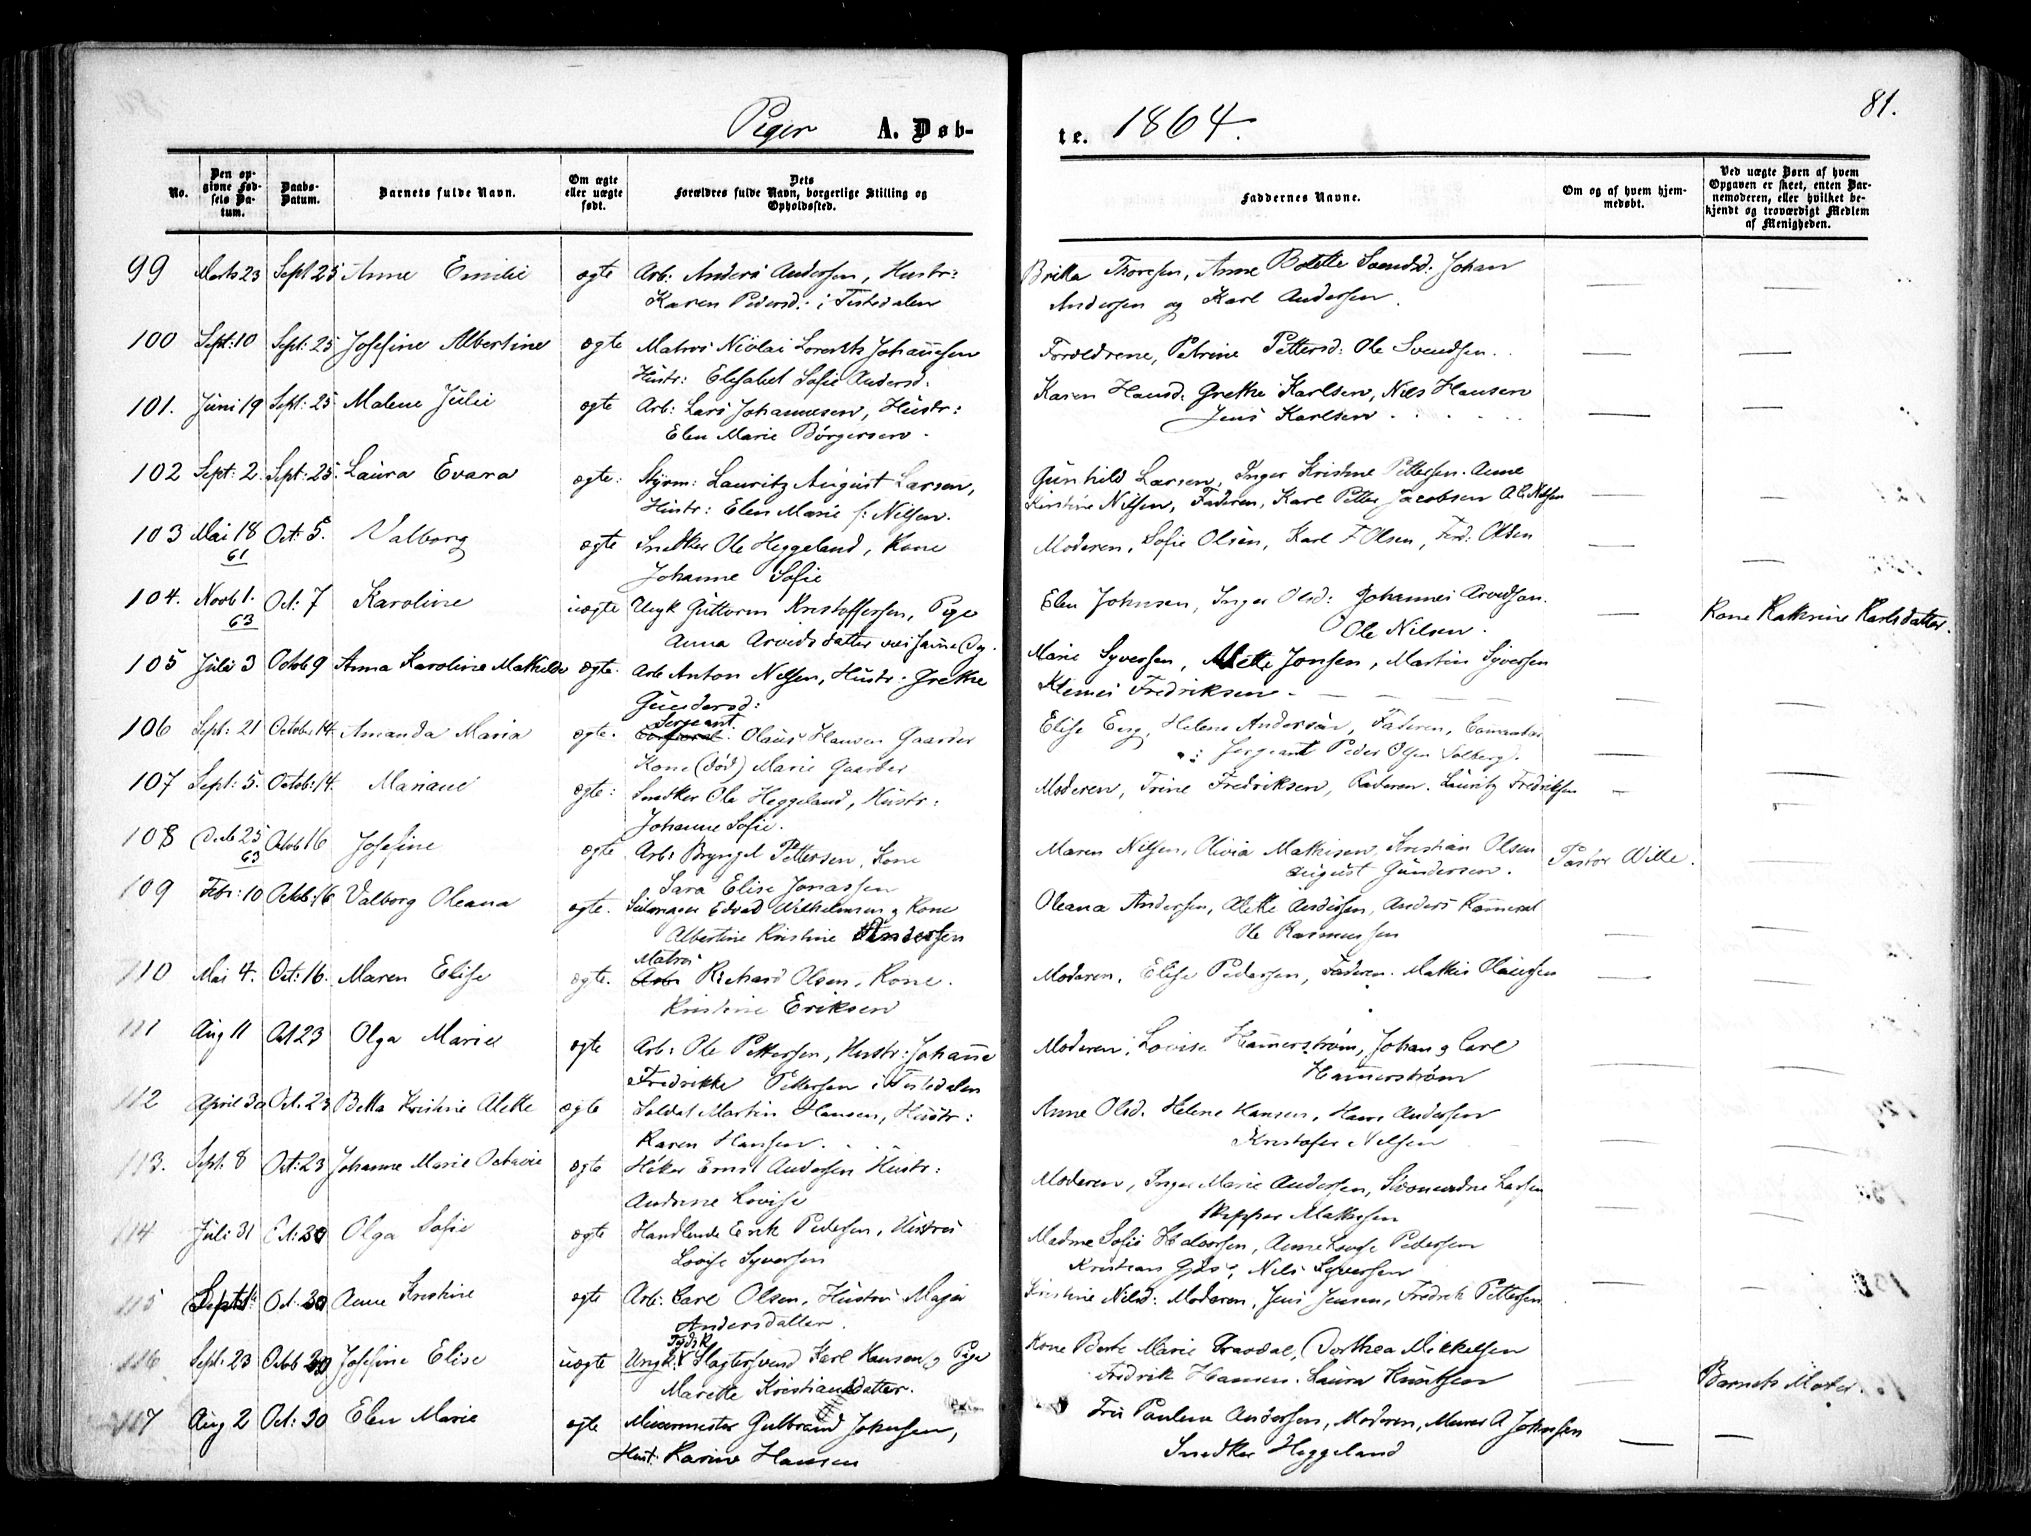 Piger A. Døb-
te. 1864.
81.
No.
Den op-
givne Fød-
sels Da-
tum.
Daabs-
Datum.
Barnets fulde Navn.
Om ægte
eller uægte
født.
Dets
Forældres fulde Navn, borgerlige Stilling og
Opholdssted.
Faddernes Navne.
Om og af hvem hjem-
medøbt.
Ved uægte Børn af hvem
Opgaven er skeet, enten Bar-
nemoderen, eller hvilket be-
kjendt og troværdigt Medlem
af Menigheden.
99 Marts 23 Sept 25 Anne Emilie ægte Arb: Anders Andersen, Hustr: Britta Thoresen, Anne Bolette Svendsd: Johan
Karen Pedersd: i Tistedalen Andersen og Karl Andersen.
100 Sept: 10 Sept: 25 Josefine Albertine ægte Matros Nicolai Lorentz Johannesen Forældrene, Petrine Pettersd: Ole Svendsen.
Hustr: Elisabet Sofie Andersd:
101. Juni 19 Sept: 25 Malene Julie ægte Arb: Lars Johannesen, Hustr: Karen Hansd: Grethe Karlsen, Nils Hansen
Elen Marie Børgersen. Jens Karlsen
102 Sept: 2 Sept: 25 Laura Evara ægte: Styrm: Lauritz August Larsen, Gunhild Larsen, Inger Kristine Pettersen. Anne
Hustr: Elen Marie f: Nilsen. Kirstine Nilsen, Faderen, Karl Petter Jacobsen
103 Mai 18 Oct: 5. Valborg ægte Snedker Ole Heggeland, Kone Moderen, Sofie Olsen, Karl F Olsen, Ferd: Olsen
61 Johanne Sofie
104. Novb 1. Oct: 7 Karoline uægte Ungk Guttorm Kristoffersen, Pige Elen Johnsen, Inger Olsd: Johannes Arvedsen. Kone Kathrine Karlsdatter.
63 Anna Arvidsdatter Ole Nilsen.
105 Juli 3 Octob 9 Anna Karoline Mathilde ægte. Arb Anton Nilsen, Hustr: Grethe Marie Syversen, Mette Jonsen, Martin Syversen
Gundersd: Fredriksen
106 Sept: 21 October 14. Amanda Maria ægte. Sergeant Olaus Hansen Gaarder Elise Eng, Helene Andersen, Faderen,
Kone (død) Marie Gaarder Sergeant Peder Olsen Solberg.
107 Sept: 5. Octob: 14. Mariane ægte: Snedker Ole Heggeland, Hustr: Moderen, Trine Fredriksen, Faderen. Lauritz Fredriksen
Johanne Sofie.
108 Decb 25 Octob 16 Josefine ægte Arb: Bryngel Pettersen, Kone Maren Nilsen, Olivia Mathisen, Kristian Olsen Pastor Wille.
63 Sara Elise Jonassen August Gundersen.
109 Febr: 10 Octob: 16 Valborg Oleana ægte. Edvad Wilhelmsen og Kone Oleana Andersen, Alette Andersen, Anders
Albertine Kristine Andersen Ole Rasmussen
110 Mai 4. Oct: 16. Maren Elise ægte. Matros Richard Olsen, Kone. Moderen, Elise Pedersen, Faderen. Mathis Olaussen
Kristine Eriksen
111 Aug 11 Oct 23 Olga Marie ægte Arb: Ole Pettersen, Hustr: Johanne Moderen, Lovise Hammerstrøm, Johan og Carl
Fredrikke Pettersen i Tistedalen Hammerstrøm
112 April 30 Oct. 23 Betta Kristine Alette ægte Soldat Martin Hansen, Hustr: Anne Olsd. Helene Hansen, Hans Andersen
Karen Hansen. Kristofer Nilsen
113. Sept: 8 Oct: 23 Johanne Marie Octavie ægte Høker Ernst Andersen Hustr: Moderen, Inger Marie Andersen, Larsen
Andrine Lovise Skipper Mathisen
114 Juli 31 Oct: 30 Olga Sofie ægte Handlende Erik Pedersen, Hustru Madme Sofie Halvorsen, Anne Lovise Pedersen
Lovise Syversen Kristian Nils Syversen
115 Sept: Oct. 30 Anne Kristine ægte Arb: Carl Olsen, Hustru Maja Kirstine Nilsd: Moderen, Jens Jensen, Fredrik Pettersen
Andersdatter.
116 Sept: 23 Octb 30 Josefine Elise uægte Ungk: Tydsk Slagtersvend Karl Hansen og Pige Kone Berte Marie Dorthea Mikkelsen
Marette Kristiansdatter. Fredrik Hansen. Laura Knutsen Barnets Moder
117 Aug 2 Oct: 30 Elen Marie ægte Murermester Gulbrand Johnsen, Fru Pauline Andersen, Moderen, Murer A Johnsen
Hust: Karine Hansen Snedker Heggeland